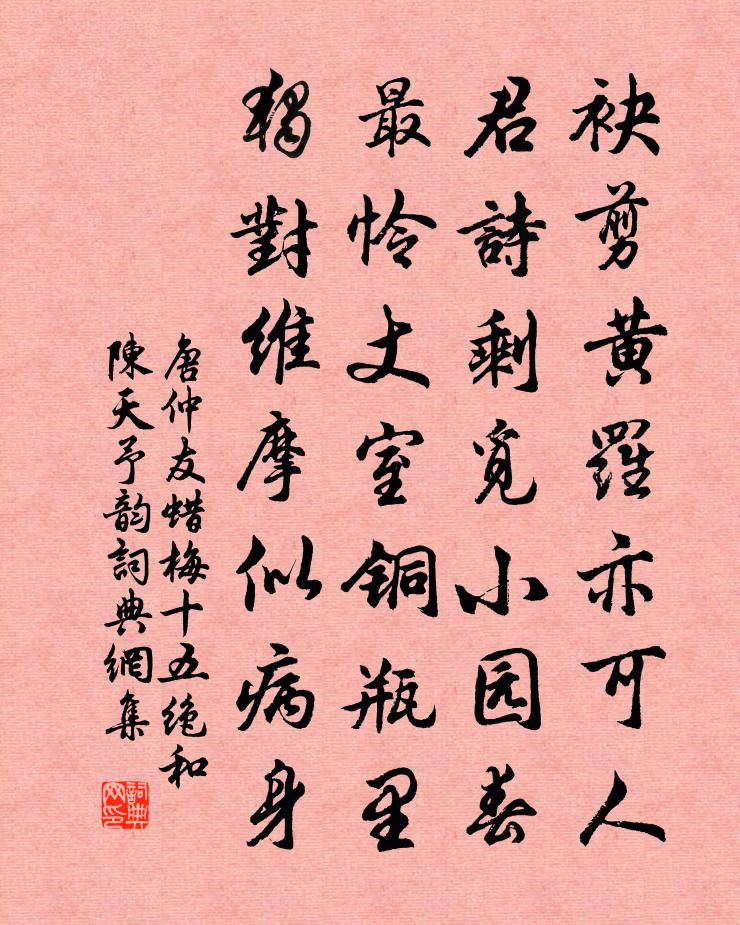 袂剪黄羅亦可人
君詩剩覓小园春
最怜丈室铜瓶里
獨對維摩似病身
唐仲友蜡梅十五绝和
陳天予韵詞典網集
詞典网印